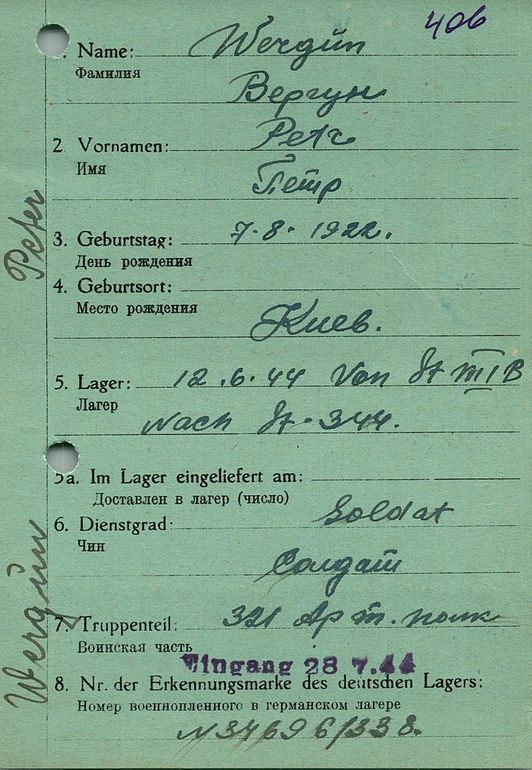 406
1. Name: Wergün
Фамилия
Вергун
2. Vornamen: Petr
Имя
Петр
3. Geburtstag: 7.8.1922.
День рождения
4. Geburtsort:
Место рождения
Киев.
5. Lager: 12.6.44 Von St III B
Лагер
Nach St. 344.
5a. Im Lager eingeliefert am:
Доставлен в лагер (число)
6. Dienstgrad: Soldat
Чин
Солдат
7. Truppenteil: 321 Арт. полк
Воинская часть
Eingang 28 7.44
8. Nr. der Erkennungsmarke des deutschen Lagers:
Номер военнопленного в германском лагере
N 34696/338.
Wergün Peter